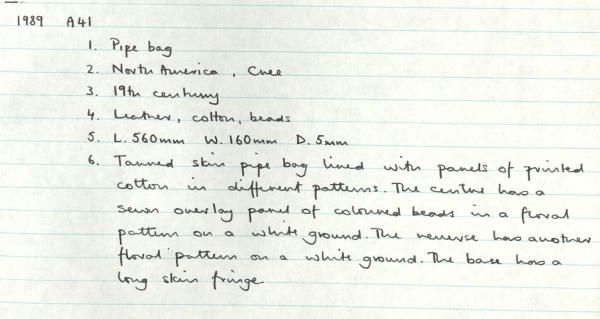 1989 A41
1. Pipe bag
2. North America, Cree
3. 19th century
4. Leather, cotton, beads
5. L. 560mm W. 160mm D. 5mm
6. Tanned skin pipe bag lined with panels of printed
cotton in different patterns. The centre has a
sewn overlay panel of coloured beads in a floral
pattern on a white ground. The reverse has another
floral pattern on a white ground. The base has a
long skin fringe